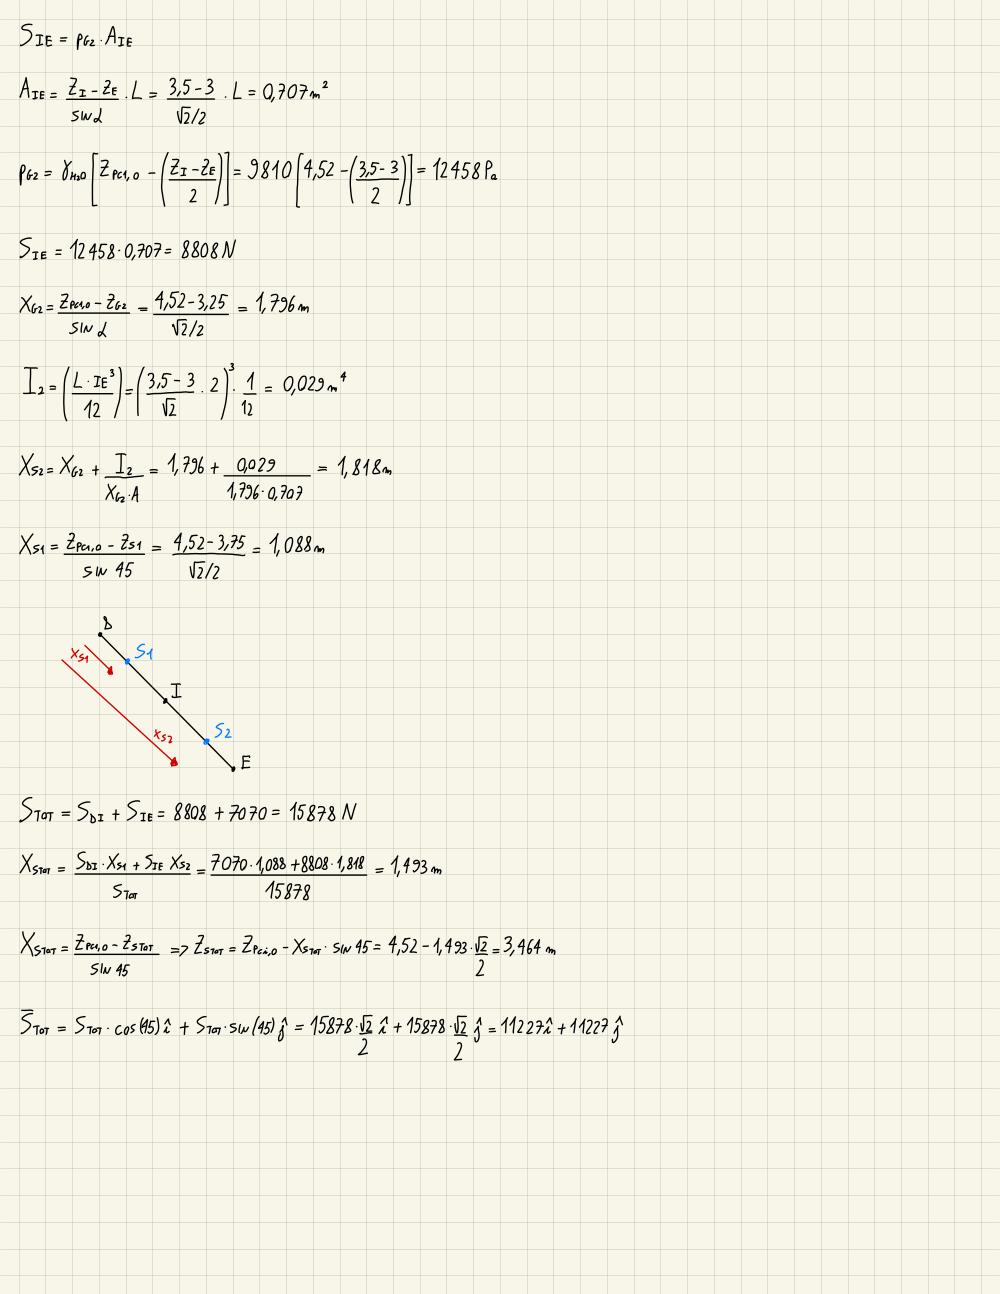 S_IE = p_G2 · A_IE
A_IE = (z_I - z_E)/(sin α) · L = (3,5-3)/(√2/2) · L = 0,707 m²
p_G2 = γ_H2O [z_PC1,0 - ((z_I - z_E)/2)] = 9810 [4,52 - ((3,5-3)/2)] = 12458 Pa
S_IE = 12458 · 0,707 = 8808 N
X_G2 = (z_PC1,0 - z_G2)/(sin α) = (4,52-3,25)/(√2/2) = 1,796 m
I_2 = ((L · IE³)/12) = ((3,5-3)/√2 · 2)³ · 1/12 = 0,029 m⁴
X_S2 = X_G2 + I_2/(X_G2 · A) = 1,796 + 0,029/(1,796 · 0,707) = 1,818 m
X_S1 = (z_PC1,0 - z_S1)/(sin 45) = (4,52-3,75)/(√2/2) = 1,088 m
D
X_S1
S1
I
X_S2
S2
E
S_TOT = S_DI + S_IE = 8808 + 7070 = 15878 N
X_STOT = (S_DI · X_S1 + S_IE X_S2)/S_TOT = (7070 · 1,088 + 8808 · 1,818)/15878 = 1,493 m
X_STOT = (z_PC1,0 - z_STOT)/(sin 45) => z_STOT = z_PCi,0 - X_STOT · sin 45 = 4,52 - 1,493 · √2/2 = 3,464 m
S̄_TOT = S_TOT · cos(45) î + S_TOT · sin(45) ĵ = 15878 · √2/2 î + 15878 · √2/2 ĵ = 11227 î + 11227 ĵ